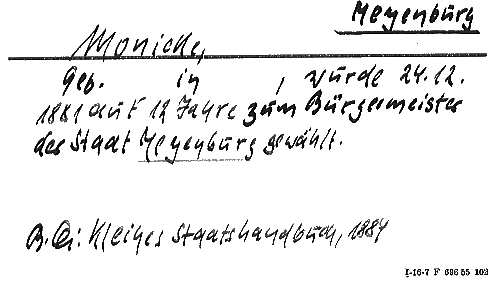 Meyenburg
Monicke,
Geb. in , wurde 24.12.
1881 auf 12 Jahre zum Bürgermeister
der Stadt Meyenburg gewählt.
Kleines Staatshandbuch, 1884
I-16-7 F 686 55 102